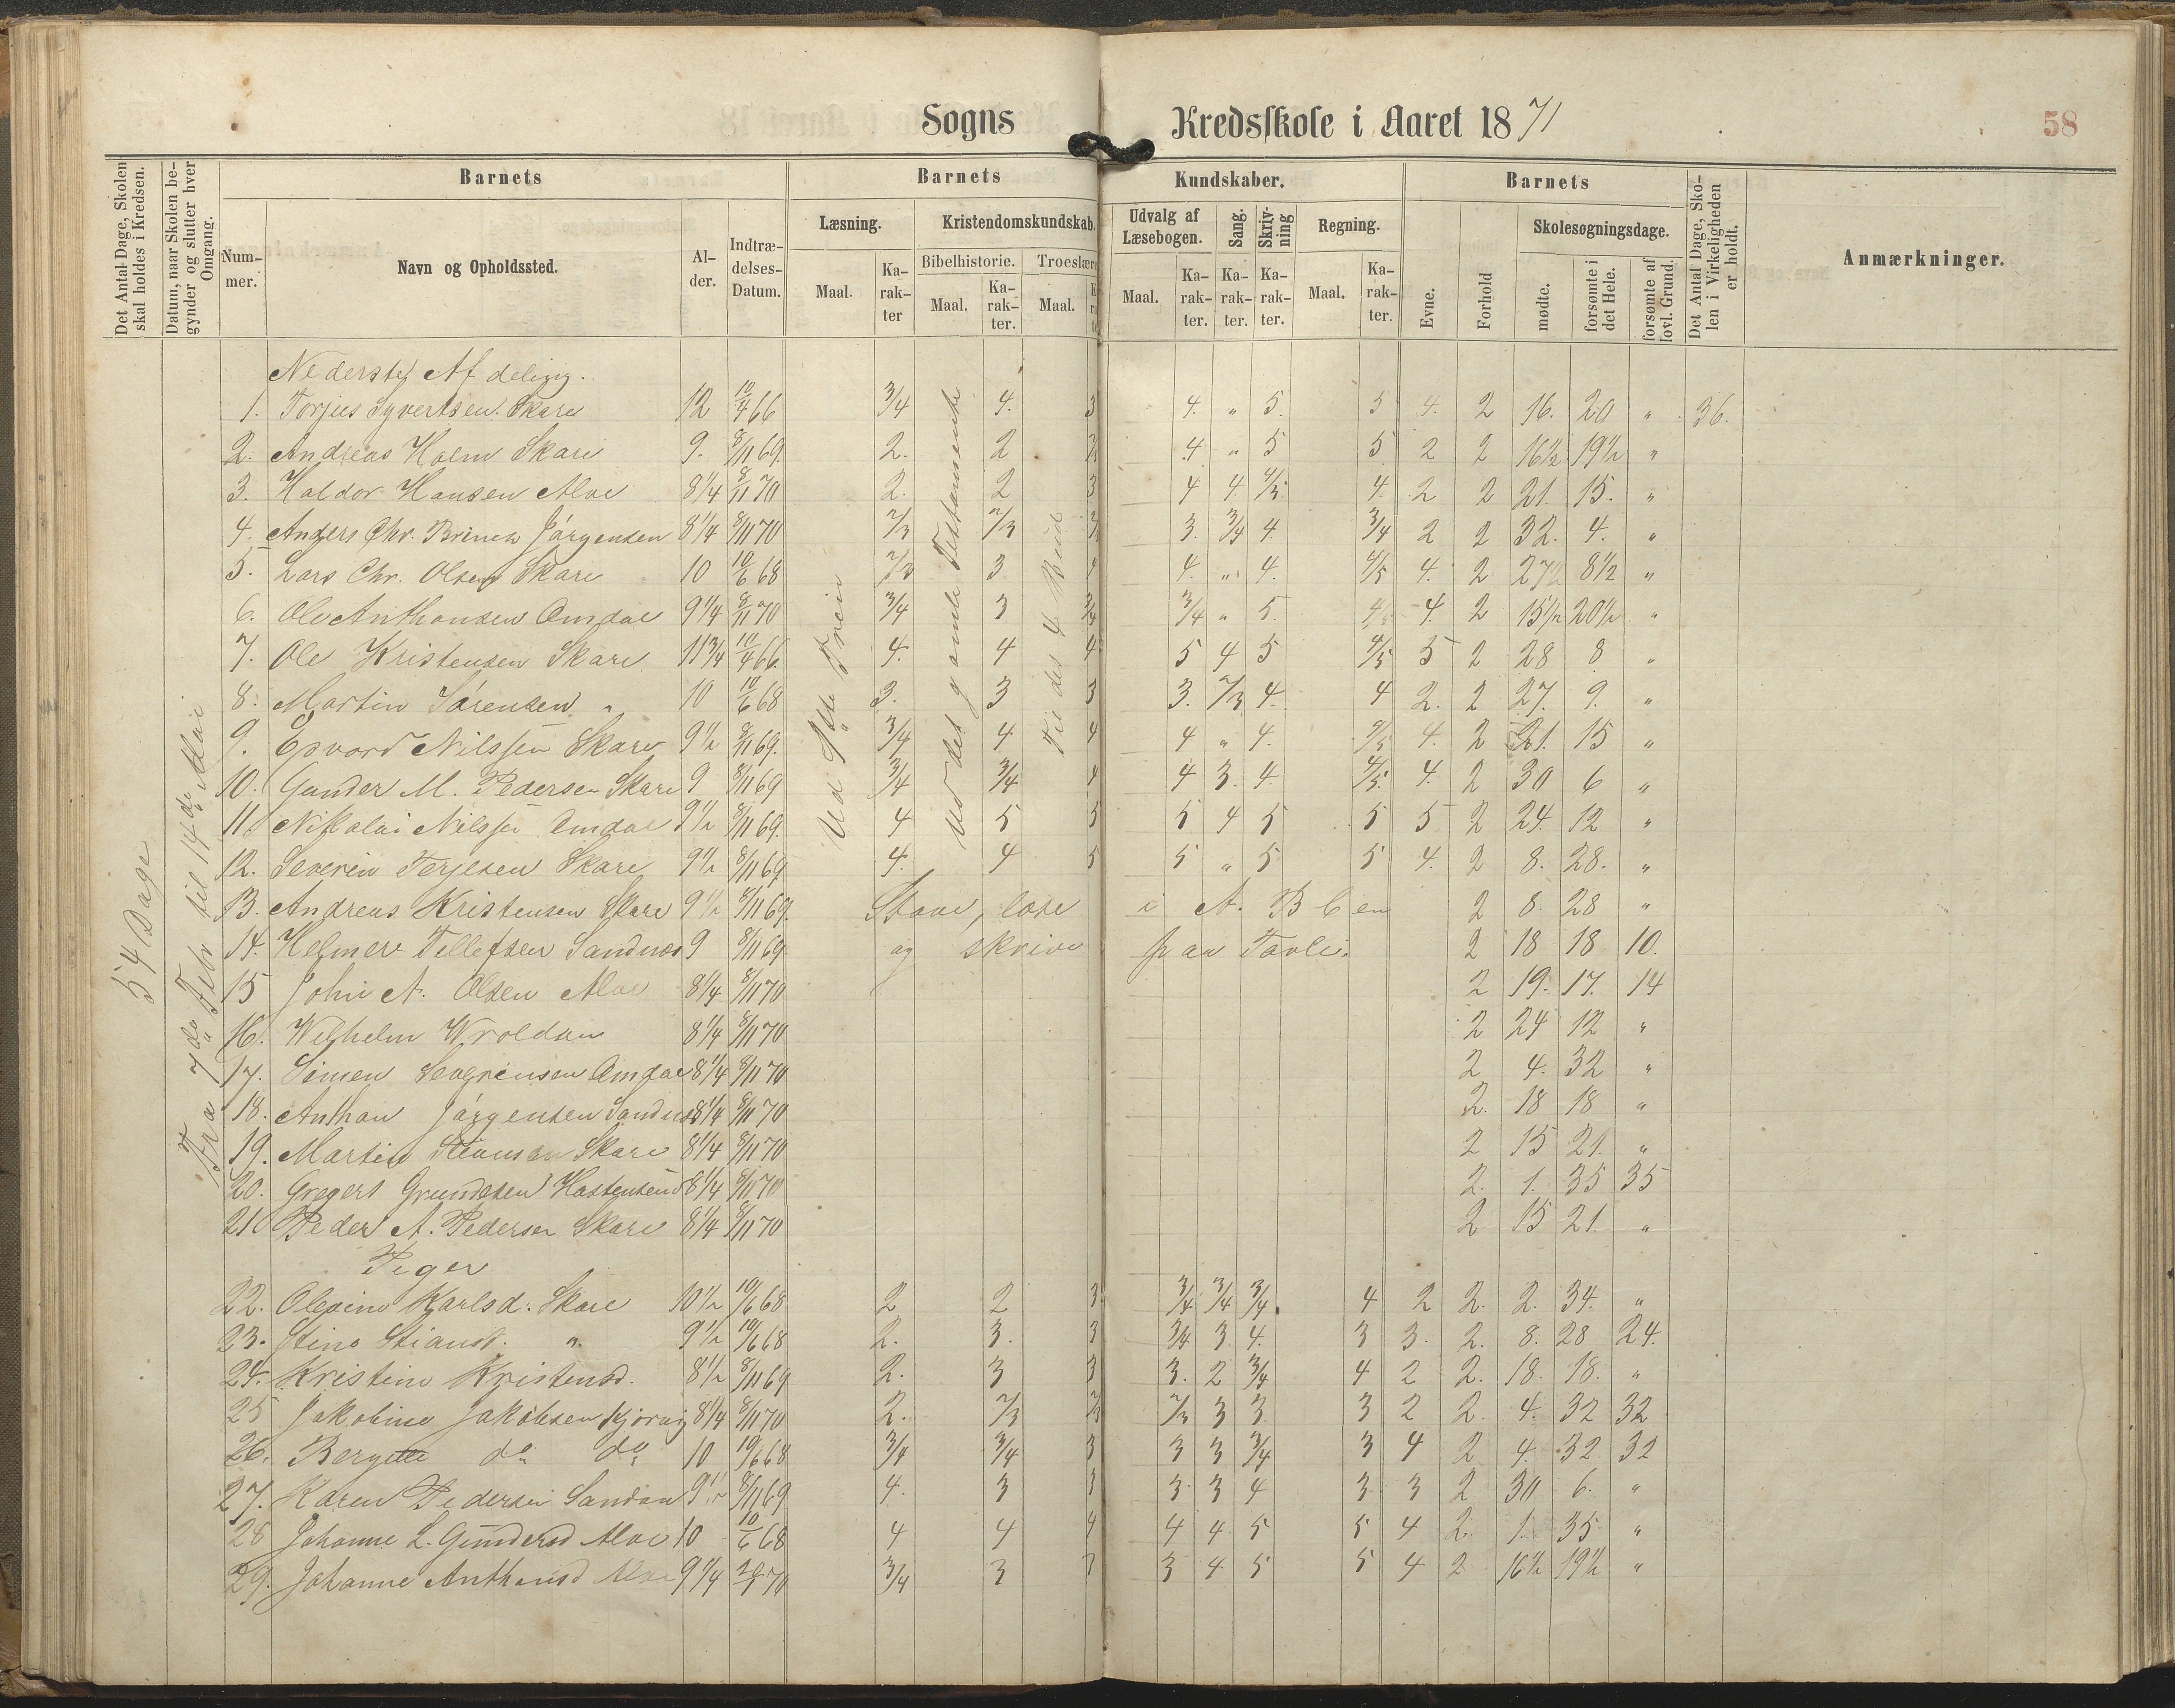 Sogns Kredsskole i Aaret 1871
58
Det Antal Dage, Skolen skal holdes i Kredsen.
Datum, naar Skolen begynder og slutter hver Omgang.
Barnets
Barnets Kundskaber.
Barnets
Det Antal Dage, Skolen i Virkeligheden er holdt.
Anmærkninger.
Nummer.
Navn og Opholdssted.
Alder.
Indtrædelses-Datum.
Læsning.
Kristendomskundskab.
Udvalg af Læsebogen.
Sang.
Skrivning
Regning.
Evne.
Forhold
Skolesøgningsdage.
Bibelhistorie.
Troeslære
Maal. Karakter
Maal. Karakter.
Maal.
Maal. Karakter. Karakter. Karakter.
Maal. Karakter.
mødte.
forsømte i det Hele.
forsømte af lovl. Grund.
54 Dage
Fra 7de Febr til 14de Mai
Nederste Afdeling.
1. Torjus Syvertsen Skare 12 10/4 66 3/4 4. 3 4. " 5. 5 4. 2 16. 20 " 36.
2. Andreas Holm Skare 9. 8/11 69. 2. 2 4 " 5 5 2 2 16½ 19½ "
3. Haldor Hansen Aloe 8¼ 8/11 70 2. 2 3 4 4. 4/5 4. 2 2 21. 15. "
4. Anders Chr. Jørgensen 8¼ 8/11 70 2/3 2/3 3. 3/4 4. 3/4 2 2 32. 4. "
5. Lars Chr. Olsen Skare 10 10/6 68 2/3 3 4 4. " 4. 4/5 4. 2 27½ 8½ "
6. Ole Anthonsen Omdal 9¼ 8/11 70 3/4 3 3/4 3/4 " 5. 4. 2 15½ 20½ "
7. Ole Kristensen Skare 11¾ 10/4 66. 4. 4 4 5 4 5 4/5 5 2 28 8 "
8. Martin Sørensen " 10 10/6 68 3. 3 3 3. 2/3 4. 4 2. 2 27. 9. "
9. Edvard Nilssen Skare 9½ 8/11 69. 3/4 4 4 4 " 4. 4. 2 21. 15 "
10. Gunder M. Pedersen Skare 9 8/11 69 3/4 3/4 4 4 3. 4. 4/5. 4. 2 30 6 "
11. Nikolai Nilssen Omdal 9½ 8/11 69. 4 5 5 5 4 5 5 5 2 24. 12 "
12. Severin Terjesen Skare 9½ 8/11 69 4. 4 5 5 " 5 5 4. 2 8. 28. "
13. Andreas Kristensen Skare 9½ 8/11 69. Stave, læse i A. B C en 2 8. 28 "
14. Helmer Tellefsen Sandnæs 9 8/11 69 og skrive paa Tavle. 2 18 18 10.
15 John A. Olsen Aloe 8¼ 8/11 70 2 19. 17. 14
16. Wilhelm Wroldsen 8¼ 8/11 70 2 24 12 "
17. Simen Omdal 8¼ 8/11 70 2 4. 32 "
18. Anthon Jørgensen Sandnæs 8¼ 8/11 70 2. 18 18 "
19. Martin Skare 8¼ 8/11 70 2 15 21. "
20. Gregert Grundesen Hastensund 8¼ 8/11 70 2. 1. 35 35
21 Peder A. Pedersen Skare 8¼ 8/11 70 2 15 21. "
Piger
22. Olevine Karlsd. Skare 10½ 10/6 68 2 2 3 3/4 3/4 3/4. 4 2 2. 2. 34. "
23. Stine Stiansd. " 9½ 10/6 68 2. 3. 3 3/4 3 4. 3 3. 2. 8. 28 24.
24. Kristine Kristensd. 8½ 8/11 69 2. 3 3 3. 2 3/4 4 2 2. 18. 18. "
25 Jakobine Jakobsen 8¼ 8/11 70 2. 2/3 2/3 2/3 3 3. 3 2 2. 4. 32 32
26. Bergitte do do 10 10/6 68 3/4 3/4 3 3 3 3/4 3 4 2 4. 32 32
27. Karen Pedersen 9½ 8/11 69 4. 3 3 3 3 4 3 3 2 30 6. "
28 Johanne L. Gundersd Aloe 10 10/6 68 4 4 4 4 4 5 5 4 2. 1. 35 "
29. Johanne Anthonsd Aloe 9¼ 3/4 3 3 4 5 5 4 2 16½ 19½ "